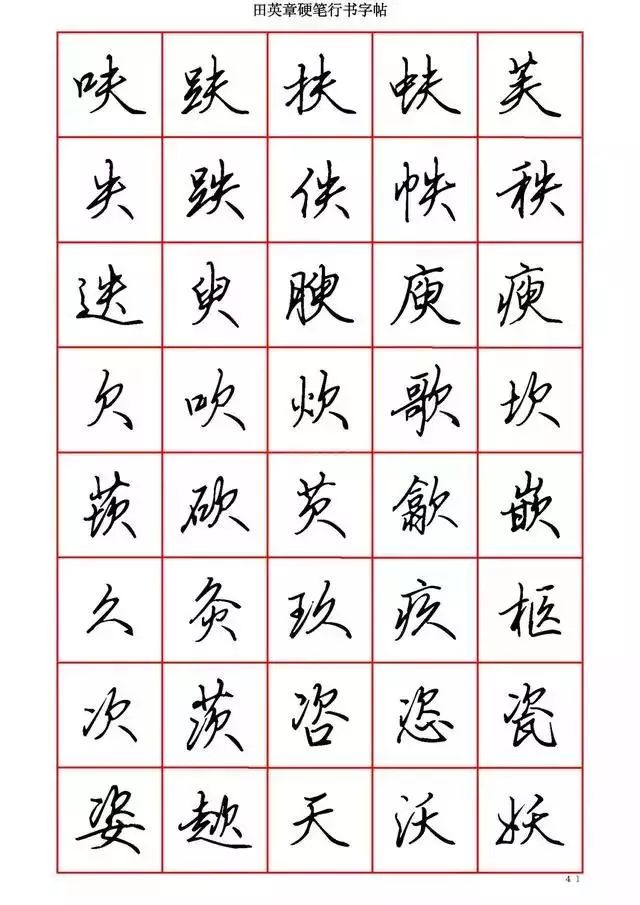 田英章硬笔行书字帖
呋 趺 扶 蚨 芙
失 跌 佚 帙 秩
迭 臾 腴 庾 瘐
欠 吹 炊 歌 坎
莰 砍 芡 歙 嵌
久 灸 玖 疚 柩
次 茨 咨 恣 瓷
姿 趑 天 沃 妖
41